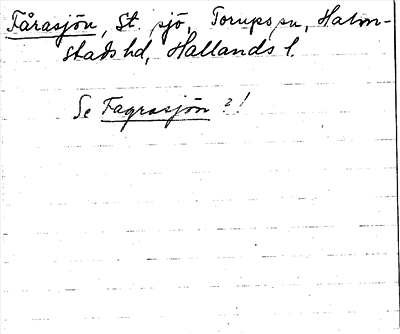 Fårasjön, St. sjö, Torups sn, Halm-
stads hd, Hallands l.
Se Fagrasjön ?!